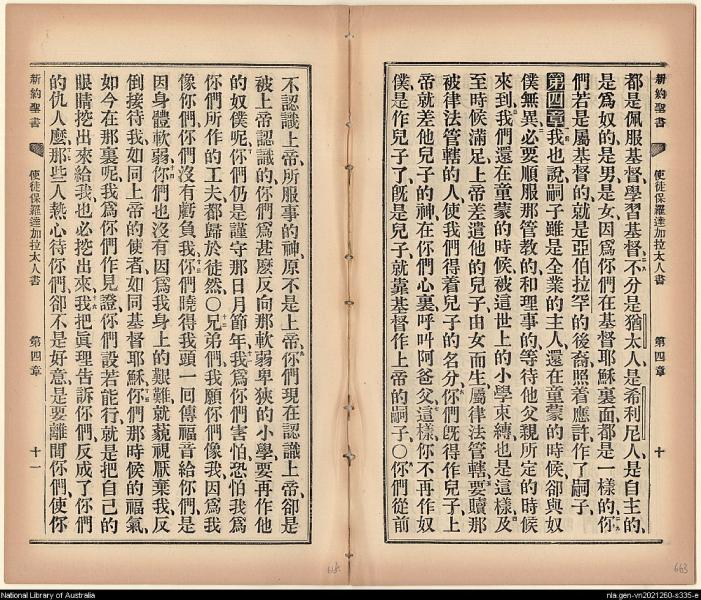 新約聖書
使徒保羅達加拉太人書
第四章
十
都是佩服基督、學習基督、不分是猶太人是希利尼人是自主的、
是爲奴的是男是女、因爲你們在基督耶穌裏面都是一樣的、你
們若是屬基督的、就是亞伯拉罕的後裔、照着應許作了嗣子、
第四章 我也說嗣子雖是全業的主人、還在童蒙的時候、卻與奴
僕無異、必要順服那管教的和理事的、等待他父親所定的時候
來到、我們還在童蒙的時候、被這世上的小學束縛、也是這樣、及
至時候滿足、上帝差遣他的兒子、由女而生、屬律法管轄、要贖那
被律法管轄的人、使我們得着兒子的名分、你們旣得作兒子、上
帝就差他兒子的神、在你們心裏呼叫阿爸父、這樣你不再作奴
僕、是作兒子了、旣是兒子、就靠基督作上帝的嗣子、〇你們從前
不認識上帝、所服事的神、原不是上帝、你們現在認識上帝、卻是
被上帝認識的、你們爲甚麽反向那軟弱卑狹的小學、要再作他
的奴僕呢、你們仍是謹守那日月節年、我爲你們害怕、恐怕我爲
你們所作的工夫都歸於徒然、〇兄弟們、我願你們像我、因爲我
像你們、你們沒有虧負我、你們曉得我頭一回傳福音給你們、是
因身體軟弱、你們也沒有因爲我身上的艱難、就藐視厭棄我、反
倒接待我、如同上帝的使者、如同基督耶穌、你們那時候的福氣、
如今在那裏呢、我爲你們作見證、你們設若能行、就是把自己的
眼睛挖出來給我、也必挖出來、我把眞理告訴你們、反成了你們
的仇人麽、那些人熱心待你們、卻不是好意、是要離間你們、使你
新約聖書
使徒保羅達加拉太人書
第四章
十一
663
National Library of Australia
nla.gen-vn2021260-s335-e